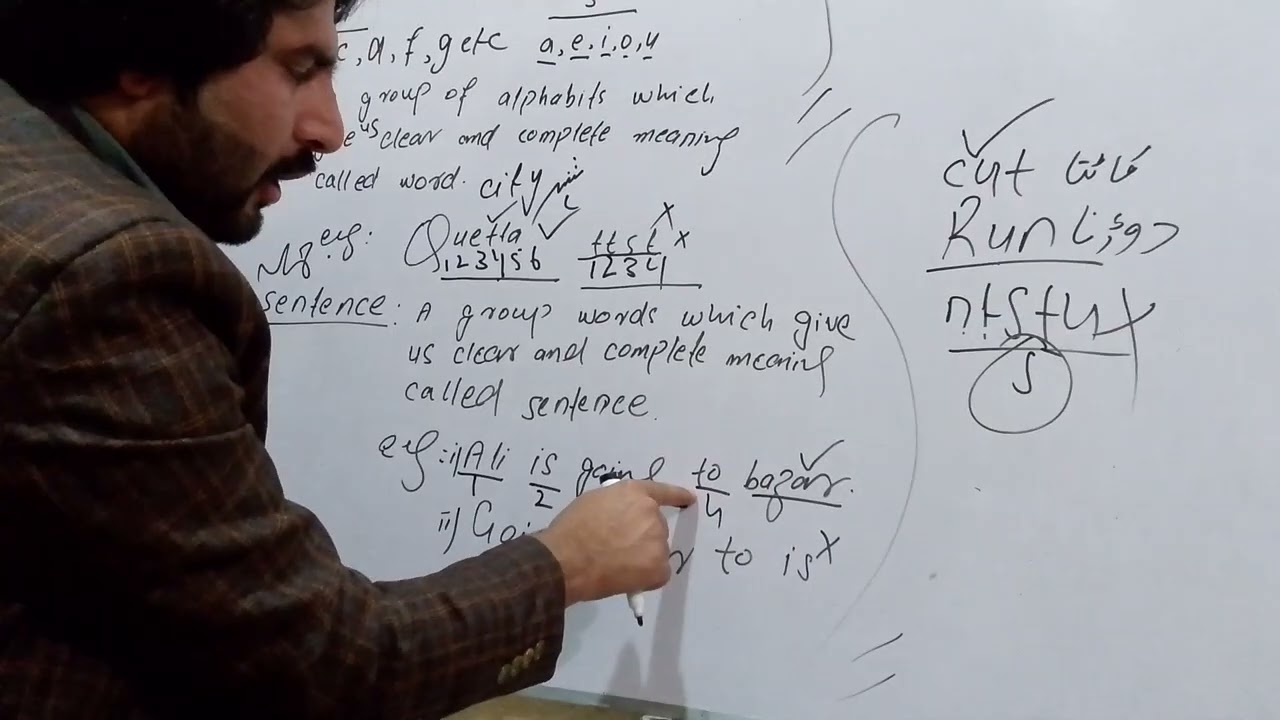 c, d, f, g etc a, e, i, o, u
group of alphabits which
us clear and complete meaning
called word. city شہر
eg: Quetta ttst x x
123456 1234
sentence: A group words which give
us clear and complete meaning
called sentence.
eg: i) Ali is going to bazar.
1 2 4
ii) to is x
cut کاٹنا
Run دوڑنا
ntstu x
S